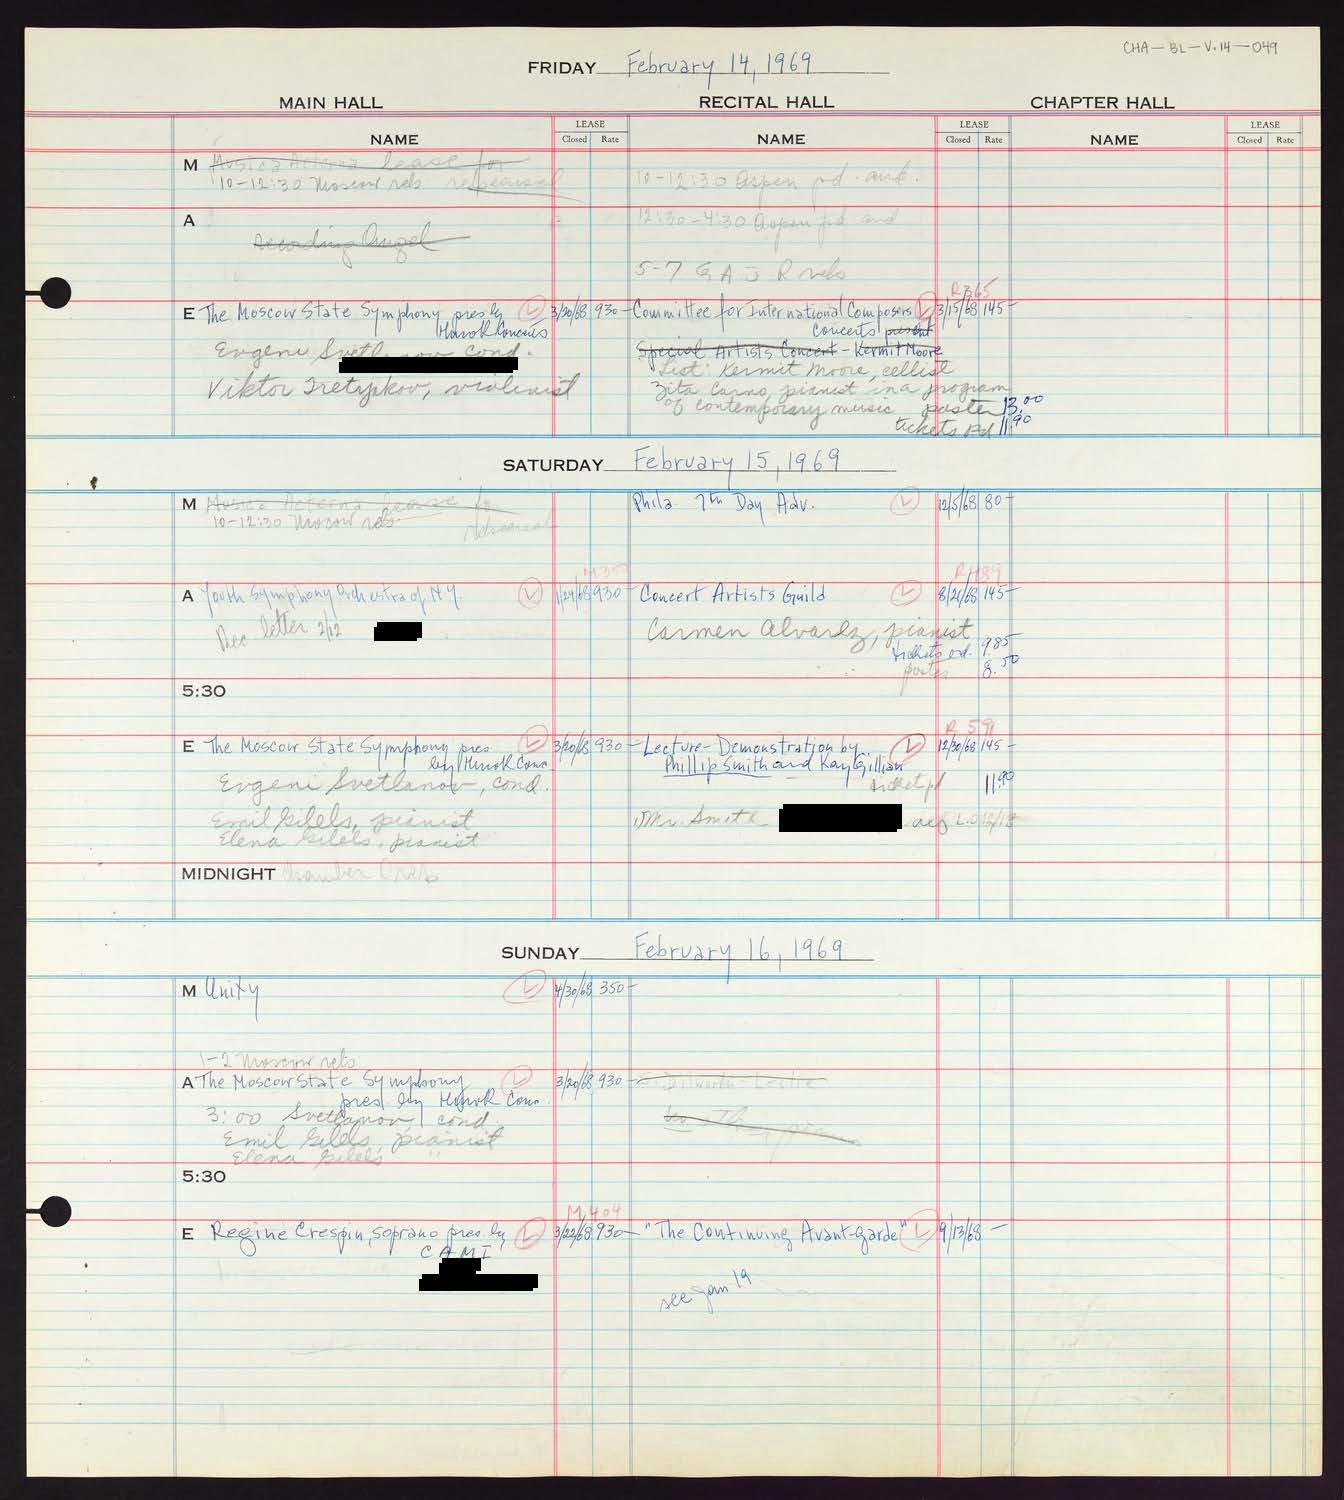 CHA-BL-V.14-049
FRIDAY February 14, 1969
MAIN HALL RECITAL HALL CHAPTER HALL
NAME LEASE Closed Rate NAME LEASE Closed Rate NAME LEASE Closed Rate
M Musica Aeterna lease for
10-12:30 Moscow reh rehearsal
10-12:30 Aspen pd. aud.
A
recording Angel
12:30-4:30 Aspen pd aud
5-7 G A J R reh
E The Moscow State Symphony pres by 3/20/68 930-
Hurok Concerts
Evgeni cond.
Viktor Tretyakov, violinist
R365
Committee for International Composers 3/15/68 145-
Concerts present
Special Artists Concert - Kermit Moore
List: Kermit Moore, cellist
Zita Carno, pianist in a program
of contemporary music poster 13.00
tickets Pd 11.90
SATURDAY February 15, 1969
M Musica Aeterna lease for
10-12:30 Moscow reh. rehearsal
Phila. 7th Day Adv. 12/5/68 80-
A Youth Symphony Orchestra of N.Y. 1/29/68 930-
Rec letter 2/12
R489
Concert Artists Guild 8/21/68 145-
Carmen Alvarez, pianist
tickets ord. 9.85
poster 8.50
5:30
E The Moscow State Symphony pres 3/20/68 930-
by Hurok Conc.
Evgeni Svetlanov, cond.
Emil Gilels, pianist
Elena Gilels, pianist
R 591
Lecture-Demonstration by 12/30/68 145-
Phillip Smith and Kay Gillian
ticket pd 11.90
Mr. Smith
MIDNIGHT Chamber Orch
SUNDAY February 16, 1969
M Unity 4/30/68 350-
1-2 Moscow reh
A The Moscow State Symphony 3/20/68 930-
pres by Hurok Conc.
3:00 Svetlanov, cond
Emil Gilels, pianist
Elena Gilels "
5:30
M404
E Regine Crespin, soprano pres by 3/22/68 930-
CAMI
"The Continuing Avant-garde" 9/13/68 -
see Jan 19